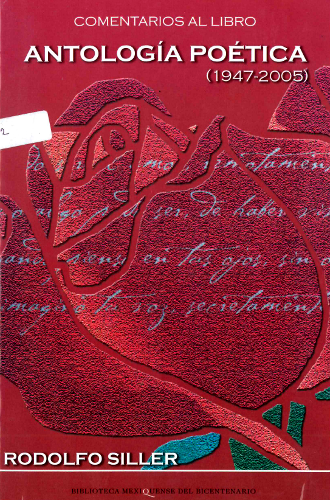 COMENTARIOS AL LIBRO
ANTOLOGÍA POÉTICA
(1947-2005)
2
secretament
o algo a de ser, de haber
siens en tus ojos, sin
imagino tu voz, secretament
RODOLFO SILLER
BIBLIOTECA MEXIQUENSE DEL BICENTENARIO